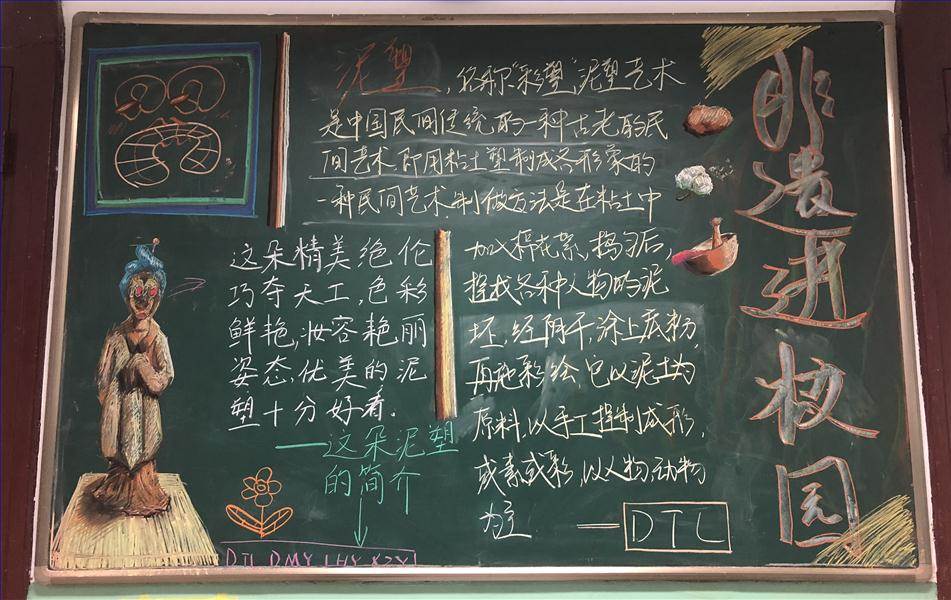 非遗进校园
泥塑,名称“彩塑”,泥塑艺术
是中国民间传统的一种古老的民
间艺术.即用粘土塑制成各形象的
一种民间艺术.制做方法是在粘土中
加入棉花絮,捣匀后,
捏成各种人物的泥
坯,经阴干涂上底粉,
再施彩绘,它以泥土为
原料,以手工捏制成形,
或素或彩,以人物,动物
为主
——DTL
这朵精美绝伦
巧夺天工,色彩
鲜艳,妆容艳丽
姿态,优美的泥
塑十分好看.
——这朵泥塑
的简介
DTL DMY LHY KZY